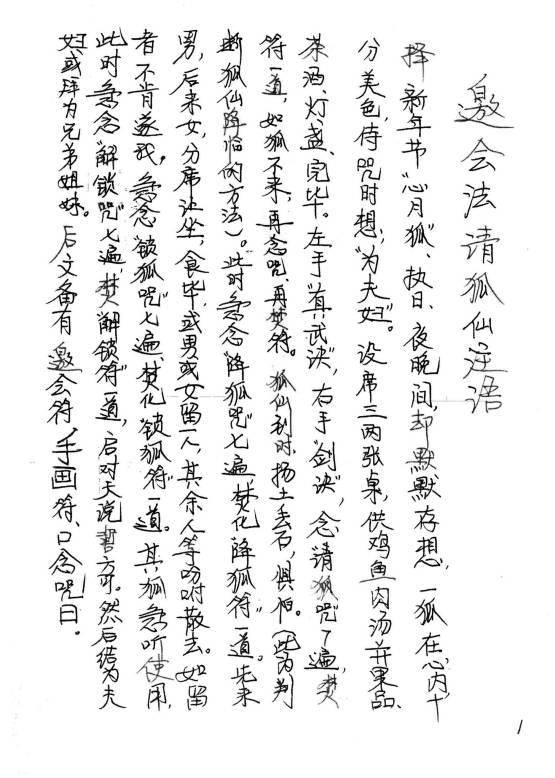 邀会法请狐仙注语
择新年节“心月狐”、执日、夜晚间,却默默存想,一狐在心内,十
分美色,侍咒时想,“为夫妇”。设席三两张桌,供鸡鱼肉汤并果品、
茶酒、灯盏、完毕。左手“真武诀”,右手“剑诀”,念请狐咒了遍,焚
符一道,如狐不来,再念咒、再焚符。狐仙到时,扬土丢石,惧怕。(此为判
断狐仙降临的方法)。此时急念“降狐咒”七遍,焚化“降狐符”一道。先来
男,后来女,分席让坐,食毕,或男或女留一人,其余人等吩咐散去。如留
者不肯遂我,急念“锁狐咒”七遍、焚化“锁狐符”一道。其狐急听使用,
此时急念“解锁咒”七遍,焚“解锁符”一道,后对天说誓方可。然后结为夫
妇或拜为兄弟姐妹。后文备有邀会符,手画符、口念咒曰。
1